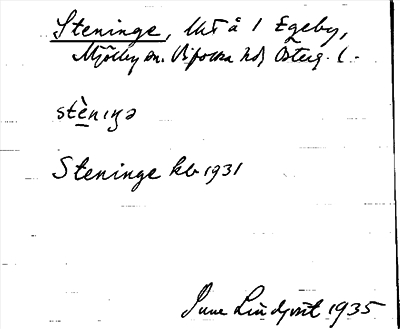 Steninge, lht å 1 Egeby,
Mjölby sn. Vifolka hd, Österg. l.
stèniŋə
Steninge kb 1931
Sune Lindqvist 1935